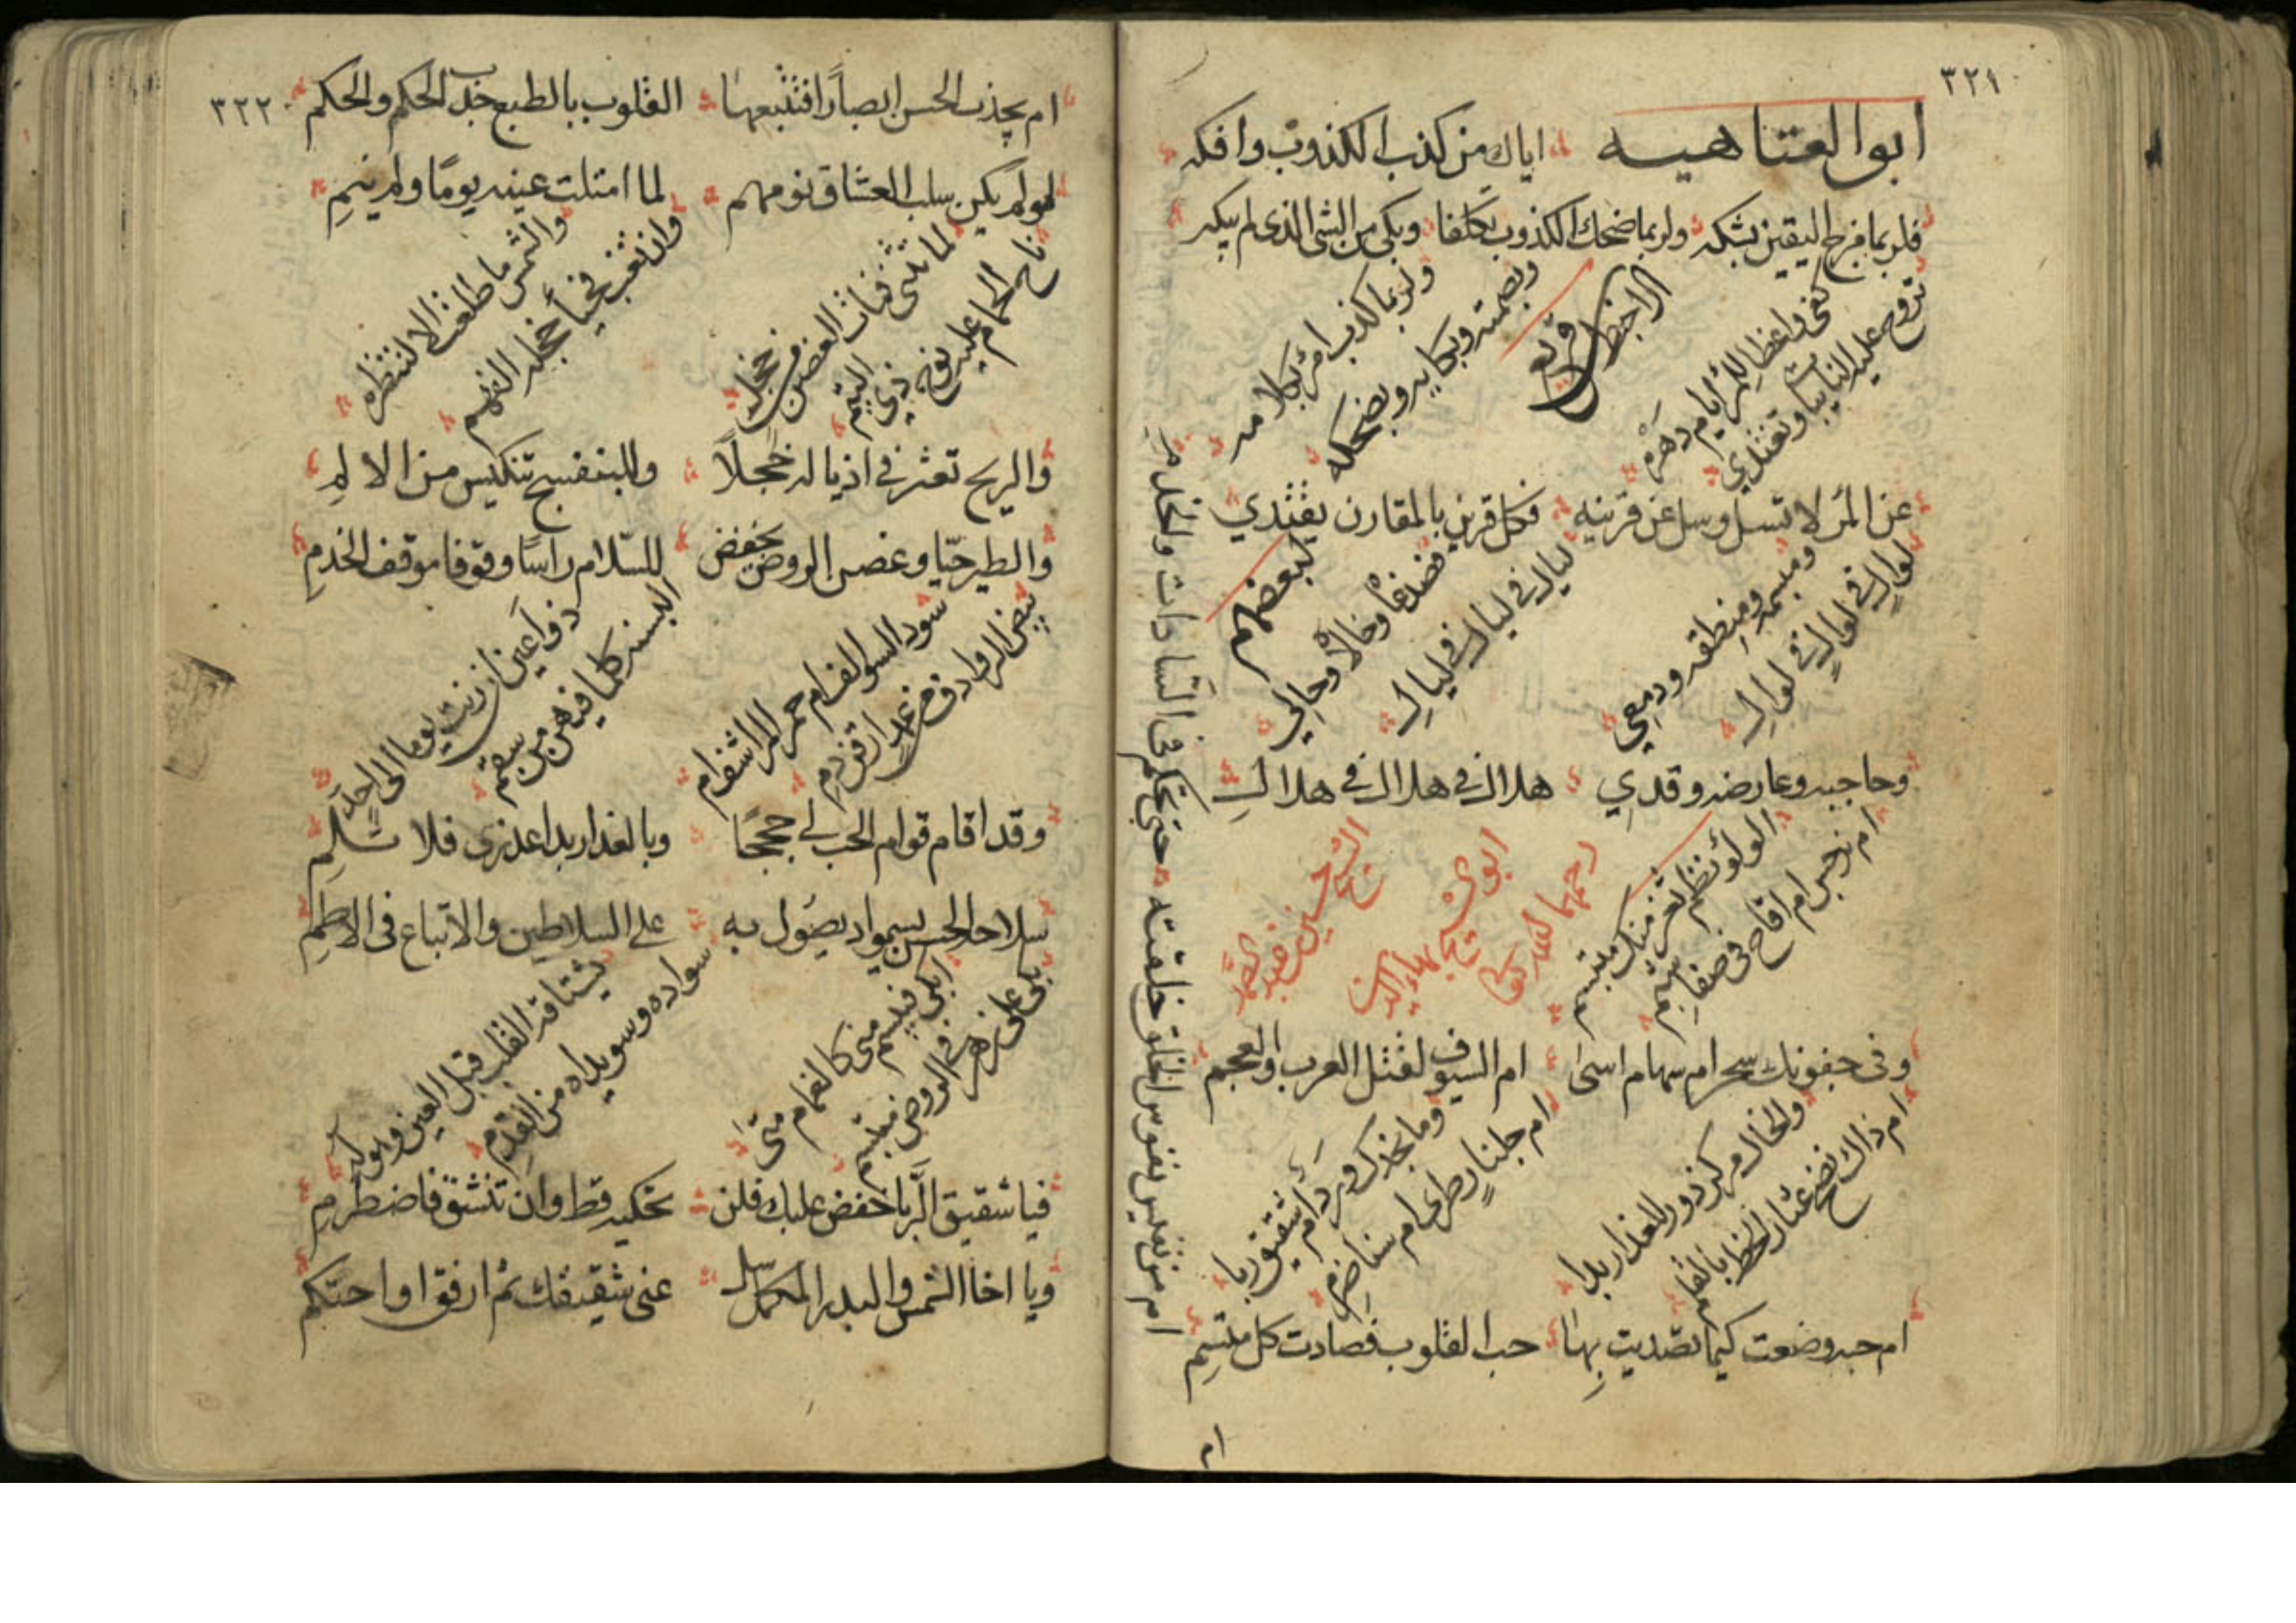 ٣٢١
ابو العتاهيه
اياك من كذب الكذوب وافكه
فلربما مزج اليقين بشكه
ولربما ضحك الكذوب تكلفا
وبكى من الشى الذى لم يبكه
ولربما كذب امرؤ بكلامه
وبصمته وبكايه وبضحكه
كفى واعظا للمرء ايام دهره
تروح عليه النايبات وتغتدي
عن المرء لا تسل وسل عن قرينه
فكل قرين بالمقارن يقتدي
لبعضهم
فصدغا وخالا وحالي
ليال فى ليال فى ليال
ومبسمه ومنطقه ودمعي
لوال فى لوال فى لوال
وحاجبه وعارضه وقدي
هلال فى هلال فى هلال
الشيخ حسين عبد الصمد
ابو الشيخ بهاء الدين
رحمهما الله تعالى
الولو نظم ثغر منك مبتسم
ام نرجس ام اقاح فى صفا بشم
وفى جفونك سحر ام سهام اسى
ام السيوف لقتل العرب والعجم
وما بخدك ورد ام شقيق ربا
ام جلنار طرى ام سنا ضرم
والخال مركز دور للعذار بدا
ام ذاك نضح عثار الخط بالقلم
ام حبه وضعت كيما تصديت بها
حب القلوب فصادت كل ملتئم
ام من تعين نفوس الخلق خلقته
حتى تحكم فى السادات والخدم
ام
٣٢٢
ام يجذب الحسن ابصارا فتتبعها
القلوب بالطبع جذب الحكم والحكم
لو لم يكن سلب العشاق نومهم
لما امتلت عينه يوما ولم ينم
لما تثنى فبات الغصن من خجل
ناح الحمام عليه نوح ذي اليتم
والشمس ما طلعت الا لتنظره
وان تغب فحيأ خجلة الفهم
والريح تعثر فى اذياله خجلا
وللبنفسج تنكيس من الالم
والطير حيا وغصن الروض يخفض
للسلام راسا وقوفا موقف الخدم
سود السوالف ام حمر المراشف ام
بيض الروادف من غير ارقن دم
ذو اعين ان رنت يوما الى احد
البسنه كلما فيهن من سقم
وقد اقام قوام الحب لي حججا
وبالعذار بدا عذرى فلا تلم
سلاح الحسن يسمو اد يصول به
على السلاطين والاتباع فى الاطم
ابكى فيبسم منى كالغمام متى
بكى على زهر فى الروض مبتسم
يشتاقه القلب قبل العين فهو له
سواده وسويداه من القدم
فيا شقيق الربا خفض عليك فلن
تحكيه قط وان تنشق فاضطرم
ويا اخا الشمس والبدر المكمل سل
عنى شقيقك ثم ارفق او احتكم